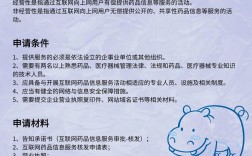 经营性是指通过互联网向上网用户有偿提供药品信息等服务的活动。
非经营性是指通过互联网向上网用户无偿提供公开的、共享性药品信息等服务的活动。
申请条件
1、提供服务的必须是依法设立的企事业单位或其他组织。
2、需要有两名以上熟悉药品、医疗器械管理法律、法规和药品、医疗器械专业知识的技术人员。
3、应具备与开展互联网药品信息服务活动相适应的专业人员、设施及相关制度。
4、应当有健全的网络与信息安全保障措施。
5、需要提交企业营业执照复印件、网站域名证书等相关材料。
申请材料
1、告知承诺书（互联网药品信息服务审批-核发）；
2、互联网药品信息服务